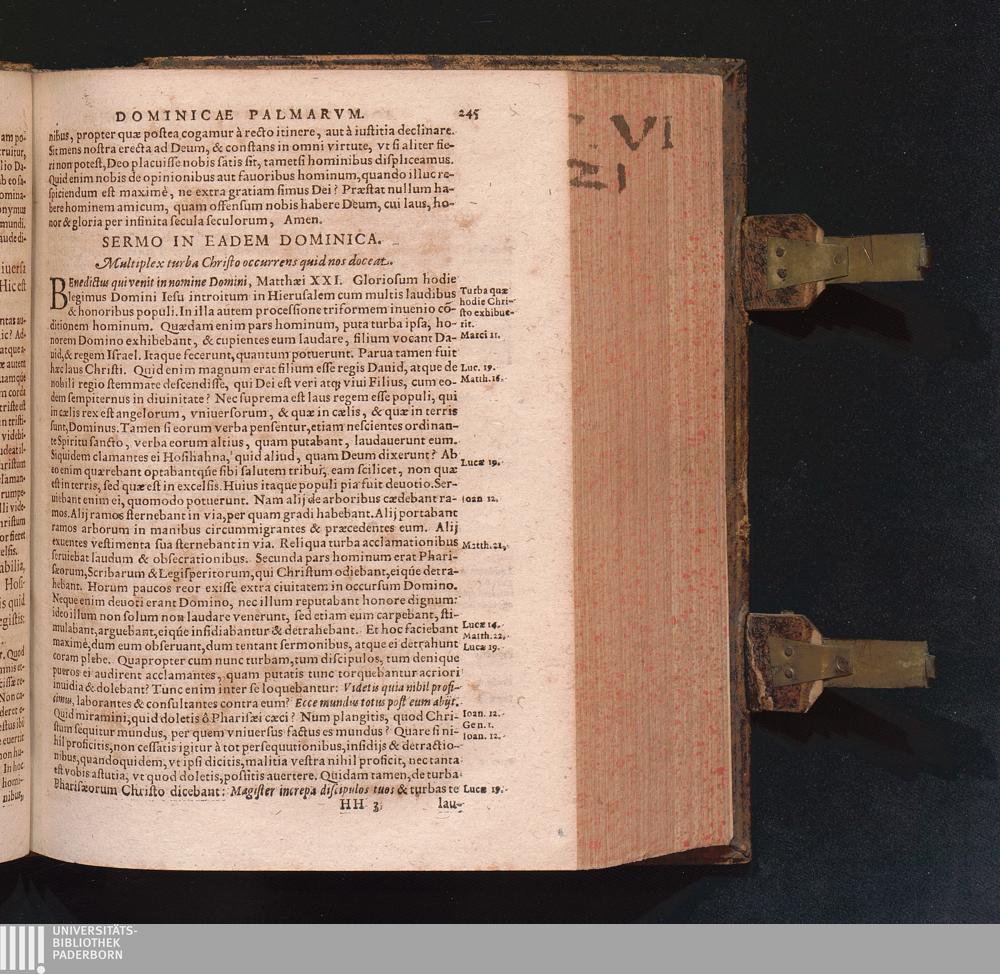 DOMINICAE PALMARVM. 245
nibus, propter quæ postea cogamur à recto itinere, aut à iustitia declinare.
Sit mens nostra erecta ad Deum, & constans in omni virtute, vt si aliter fie-
ri non potest, Deo placuisse nobis satis sit, tametsi hominibus displiceamus.
Quid enim nobis de opinionibus aut fauoribus hominum, quando illuc re-
spiciendum est maximè, ne extra gratiam simus Dei? Præstat nullum ha-
bere hominem amicum, quam offensum nobis habere Deum, cui laus, ho-
nor & gloria per infinita secula seculorum, Amen.
SERMO IN EADEM DOMINICA.
Multiplex turba Christo occurrens quid nos doceat.
BEnedictus qui venit in nomine Domini, Matthæi XXI. Gloriosum hodie
legimus Domini Iesu introitum in Hierusalem cum multis laudibus
& honoribus populi. In illa autem processione triformem inuenio cō-
ditionem hominum. Quædam enim pars hominum, puta turba ipsa, ho-
norem Domino exhibebant, & cupientes eum laudare, filium vocant Da-
uid, & regem Israel. Itaque fecerunt, quantum potuerunt. Parua tamen fuit
hæc laus Christi. Quid enim magnum erat filium esse regis Dauid, atque de
nobili regio stemmate descendisse, qui Dei est veri atq; viui Filius, cum eo-
dem sempiternus in diuinitate? Nec suprema est laus regem esse populi, qui
in cælis rex est angelorum, vniuersorum, & quæ in cælis, & quæ in terris
sunt, Dominus. Tamen si eorum verba pensentur, etiam nescientes ordinan-
te Spiritu sancto, verba eorum altius, quam putabant, laudauerunt eum.
Siquidem clamantes ei Hosihahna, quid aliud, quam Deum dixerunt? Ab
eo enim quærebant optabantqúe sibi salutem tribui, eam scilicet, non quæ
est in terris, sed quæ est in excelsis. Huius itaque populi pia fuit deuotio. Ser-
uiebant enim ei, quomodo potuerunt. Nam alij de arboribus cædebant ra-
mos. Alij ramos sternebant in via, per quam gradi habebant. Alij portabant
ramos arborum in manibus circummigrantes & præcedentes eum. Alij
exuentes vestimenta sua sternebant in via. Reliqua turba acclamationibus
seruiebat laudum & obsecrationibus. Secunda pars hominum erat Phari-
sæorum, Scribarum & Legisperitorum, qui Christum odiebant, eiqúe detra-
hebant. Horum paucos reor exisse extra ciuitatem in occursum Domino.
Neque enim deuoti erant Domino, nec illum reputabant honore dignum:
ideo illum non solum non laudare venerunt, sed etiam eum carpebant, sti-
mulabant, arguebant, eiqúe insidiabantur & detrahebant. Et hoc faciebant
maximè, dum eum obseruant, dum tentant sermonibus, atque ei detrahunt
coram plebe. Quapropter cum nunc turbam, tum discipulos, tum denique
pueros ei audirent acclamantes, quam putatis tunc torquebantur acriori
inuidia & dolebant? Tunc enim inter se loquebantur: Videtis quia nihil profi-
cimus, laborantes & consultantes contra eum? Ecce mundus totus post eum abijt.
Quid miramini, quid doletis ô Pharisæi cæci? Num plangitis, quod Chri-
stum sequitur mundus, per quem vniuersus factus es mundus? Quare si ni-
hil proficitis, non cessatis igitur à tot persequutionibus, insidijs & detractio-
nibus, quandoquidem, vt ipsi dicitis, malitia vestra nihil proficit, nec tanta
est vobis astutia, vt quod doletis, possitis auertere. Quidam tamen, de turba
Pharisæorum Christo dicebant: Magister increpa discipulos tuos & turbas te
HH 3 lau-
Turba quæ
hodie Chri-
sto exhibue-
rit.
Marci 11.
Luc. 19.
Matth. 16.
Lucæ 19.
Ioan 12.
Matth. 21.
Lucæ 14.
Matth. 22.
Lucæ 19.
Ioan. 12.
Gen. 1.
Ioan. 12.
Lucæ 19.
VI
UNIVERSITÄTS-
BIBLIOTHEK
PADERBORN